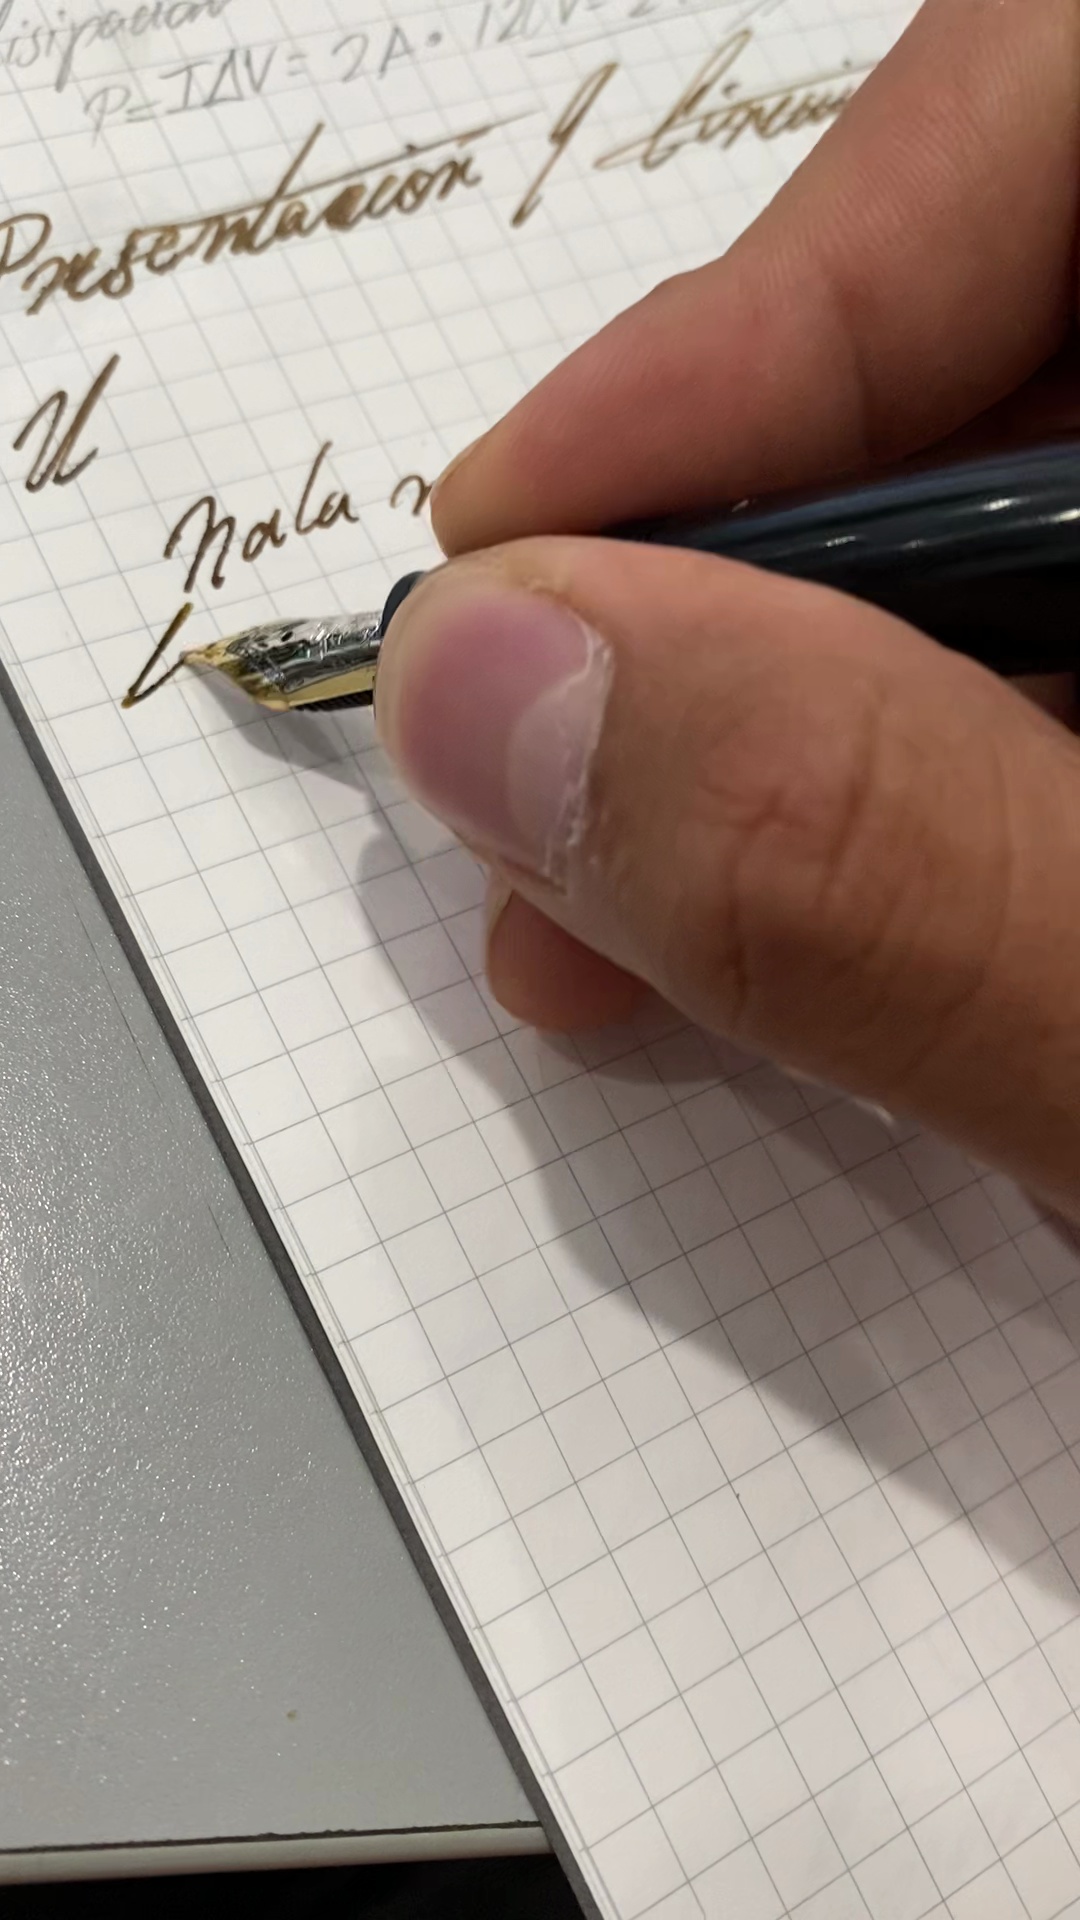 disipación
P=IΔV= 2A · 120V= 2
Presentación y Circui
U
Nala